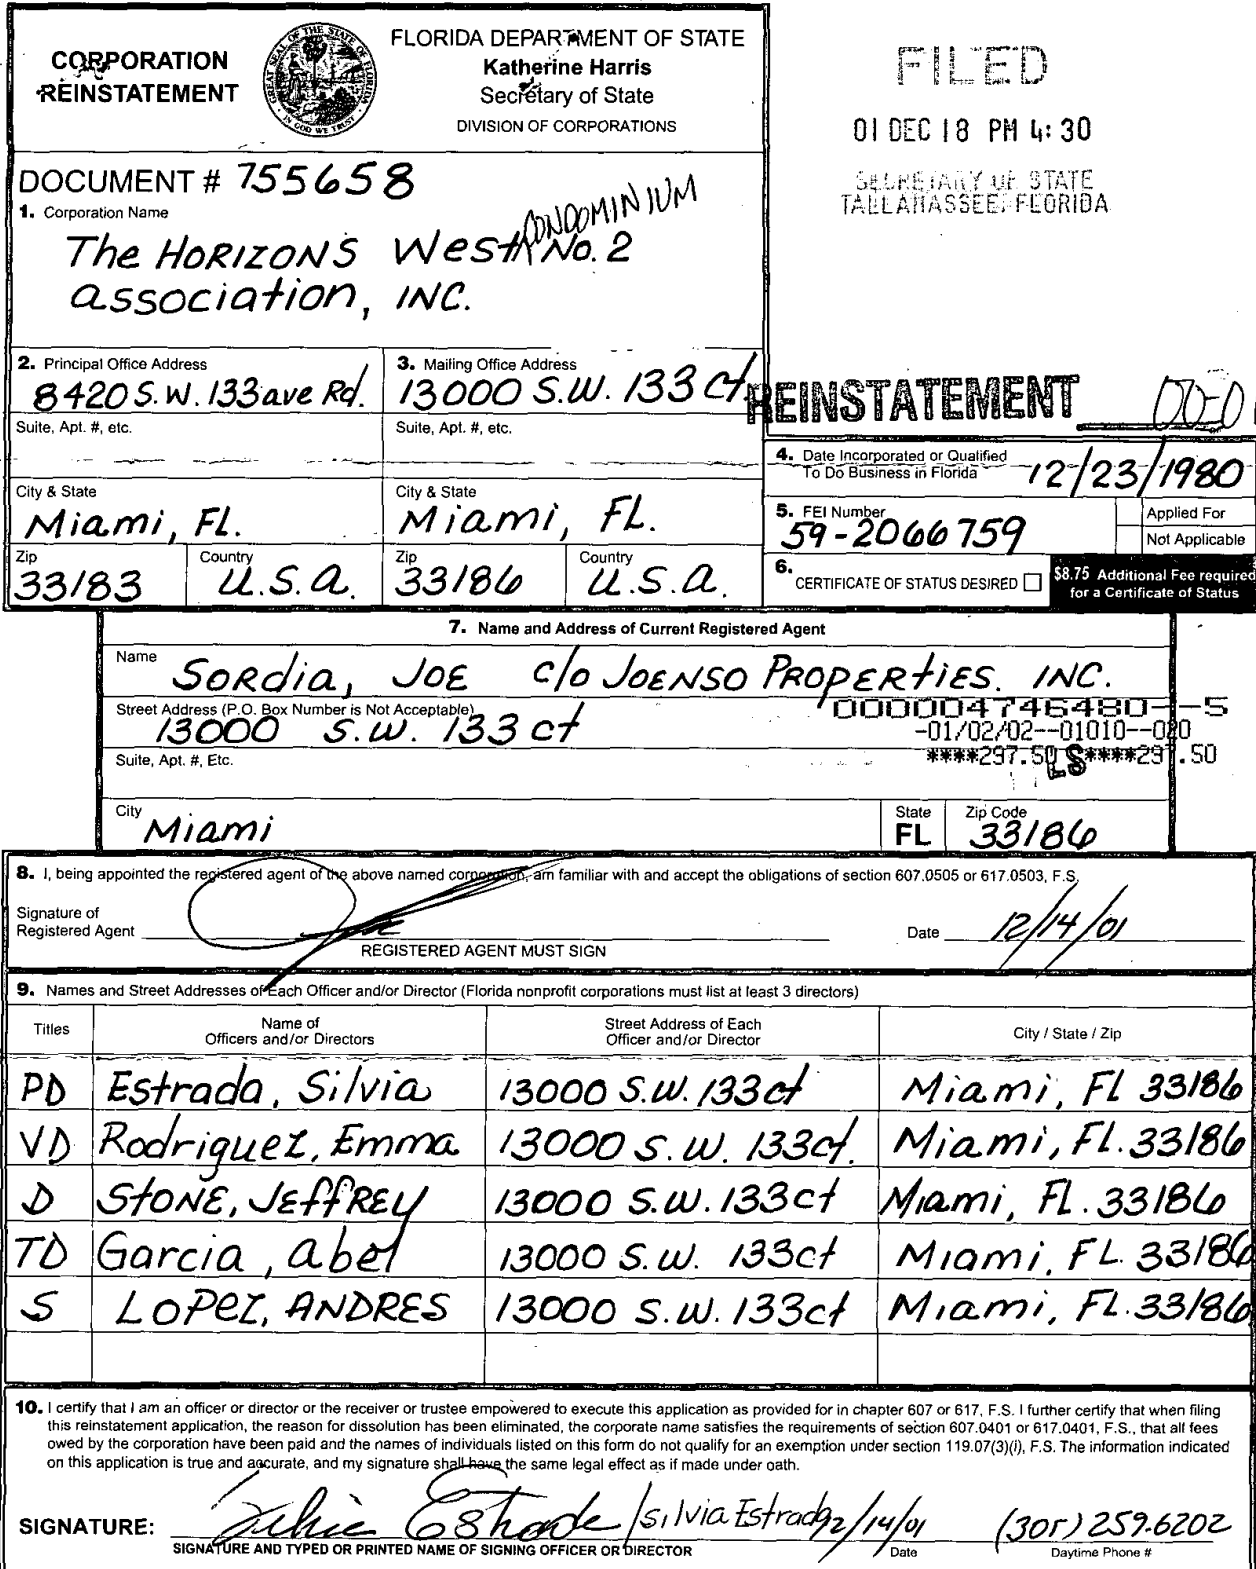 CORPORATION
REINSTATEMENT
GREAT SEAL OF THE STATE OF FLORIDA
IN GOD WE TRUST
FLORIDA DEPARTMENT OF STATE
Katherine Harris
Secretary of State
DIVISION OF CORPORATIONS
FILED
01 DEC 18 PM 4:30
SECRETARY OF STATE
TALLAHASSEE, FLORIDA
DOCUMENT # 755658
1. Corporation Name
CONDOMINIUM
The HORIZONS West No. 2
association, INC.
2. Principal Office Address
8420 S.W. 133 ave Rd.
3. Mailing Office Address
13000 S.W. 133 Ct.
REINSTATEMENT
Suite, Apt. #, etc.
Suite, Apt. #, etc.
4. Date Incorporated or Qualified
To Do Business in Florida
12/23/1980
City & State
Miami, FL.
City & State
Miami, FL.
5. FEI Number
59-2066759
Applied For
Not Applicable
Zip
33183
Country
U.S.A.
Zip
33186
Country
U.S.A.
6. CERTIFICATE OF STATUS DESIRED
$8.75 Additional Fee required
for a Certificate of Status
7. Name and Address of Current Registered Agent
Name
Sordia, JOE c/o JOENSO PROPERTIES. INC.
Street Address (P.O. Box Number is Not Acceptable)
13000 S.W. 133 ct
000004746480--5
-01/02/02--01010--020
****297.50 ****297.50
LS
Suite, Apt. #, Etc.
City
Miami
State
FL
Zip Code
33186
8. I, being appointed the registered agent of the above named corporation, am familiar with and accept the obligations of section 607.0505 or 617.0503, F.S.
Signature of
Registered Agent
REGISTERED AGENT MUST SIGN
Date 12/14/01
9. Names and Street Addresses of Each Officer and/or Director (Florida nonprofit corporations must list at least 3 directors)
Titles
Name of
Officers and/or Directors
Street Address of Each
Officer and/or Director
City / State / Zip
PD Estrada, Silvia 13000 S.W. 133 ct Miami, Fl 33186
VD Rodriguez, Emma 13000 S.W. 133ct. Miami, FL. 33186
D STONE, JEFFREY 13000 S.W. 133ct Miami, FL. 33186
TD Garcia, abel 13000 S.W. 133ct Miami, FL. 33186
S LOPEZ, ANDRES 13000 S.W. 133ct Miami, FL. 33186
10. I certify that I am an officer or director or the receiver or trustee empowered to execute this application as provided for in chapter 607 or 617, F.S. I further certify that when filing
this reinstatement application, the reason for dissolution has been eliminated, the corporate name satisfies the requirements of section 607.0401 or 617.0401, F.S., that all fees
owed by the corporation have been paid and the names of individuals listed on this form do not qualify for an exemption under section 119.07(3)(i), F.S. The information indicated
on this application is true and accurate, and my signature shall have the same legal effect as if made under oath.
SIGNATURE: Silvia Estrada / Silvia Estrada 12/14/01 (305) 259.6202
SIGNATURE AND TYPED OR PRINTED NAME OF SIGNING OFFICER OR DIRECTOR
Date
Daytime Phone #